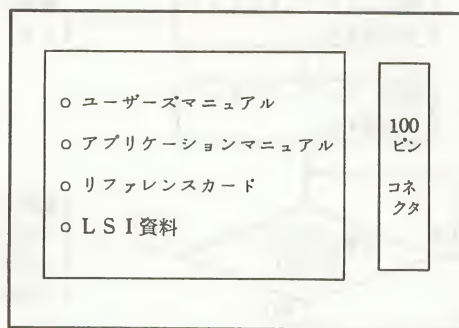 o ユーザーズマニュアル
o アプリケーションマニュアル
o リファレンスカード
o LSI資料
100
ピン
コネ
クタ